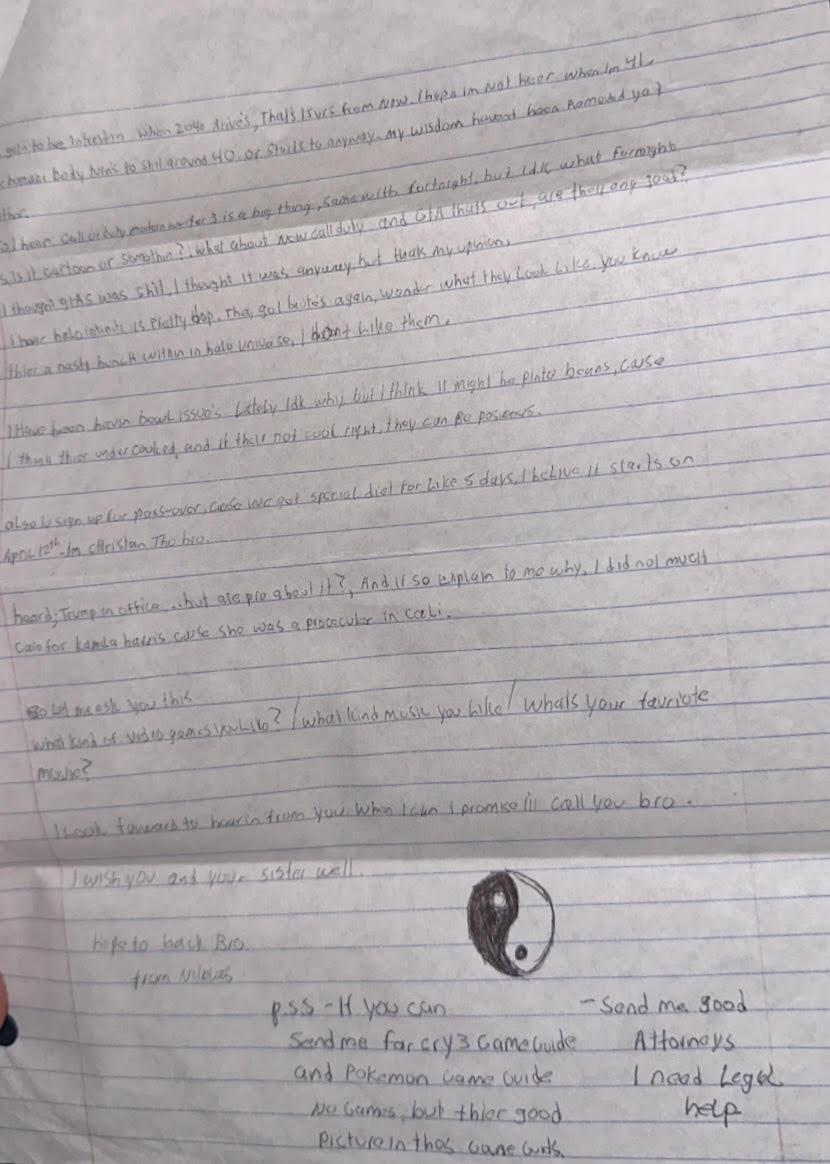 goin to be Intrestin when 2040 Arive's, That's 15yrs from Now. I hope im Not heer when Im 41.
human body turn's to shit around 40. or starts to anyway. my wisdom havend been Removed yet
thor.
I hear Call of duty modern warfer 3 is a big thing, same with fortnight, but Idk what Fornight
is, Is it cartoon or Somthin? what about New call duty and GTA thats out, are they any goat?
I thought gtA5 was shit, I thought it was anyway, but thats my upnion.
I hear halo infinite is Pretty dop. They got brute's again, wonder what they Look Like. you know
thier a nasty bunch within in halo univase, I dont Like them.
I Have been havin bowl issue's Lately Idk why, but I think it might be pinto beans, cause
I think thier under cooked, and if their not cook right, they can be posionus.
also I sign up for pass-over, cause we get special diet for Like 5 days, I belive it starts on
April 12th. Im cHristan Tho bro.
heard; Trump in office .. but are pro about it?, And if so explain to me why, I did not much
Caio for kamla harris cause she was a procecuter in Cali.
So let me ask you this
what kind of video games you Like? / what kind music you Like / whats your favriote
movie?
I Look foward to hearin from you. when I can I promise ill call you bro.
I wish you and your sister well.
hope to back Bro
from
p.s.s - If you can
Send me far cry 3 Game Guide
and Pokemon Game Guide
No Games, but thier good
Picture in thos Game
- Send me good
Attorneys
I need Legal
help